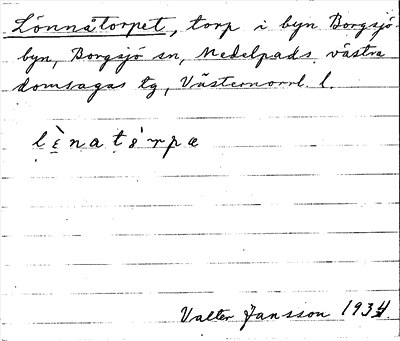 Lönnåtorpet, torp i byn Borgsjö
byn, Borgsjö sn, Medelpads västra
domsagas tg, Västernorrl. l.
Valter Jansson 1934.